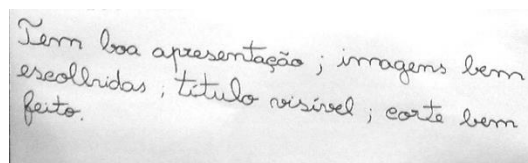 Tem boa apresentação; imagens bem
escolhidas; título visível; corte bem
feito.